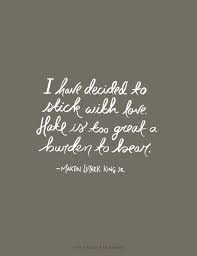 I have decided to
stick with love.
Hate is too great a
burden to bear.
-MARTIN LUTHER KING JR.